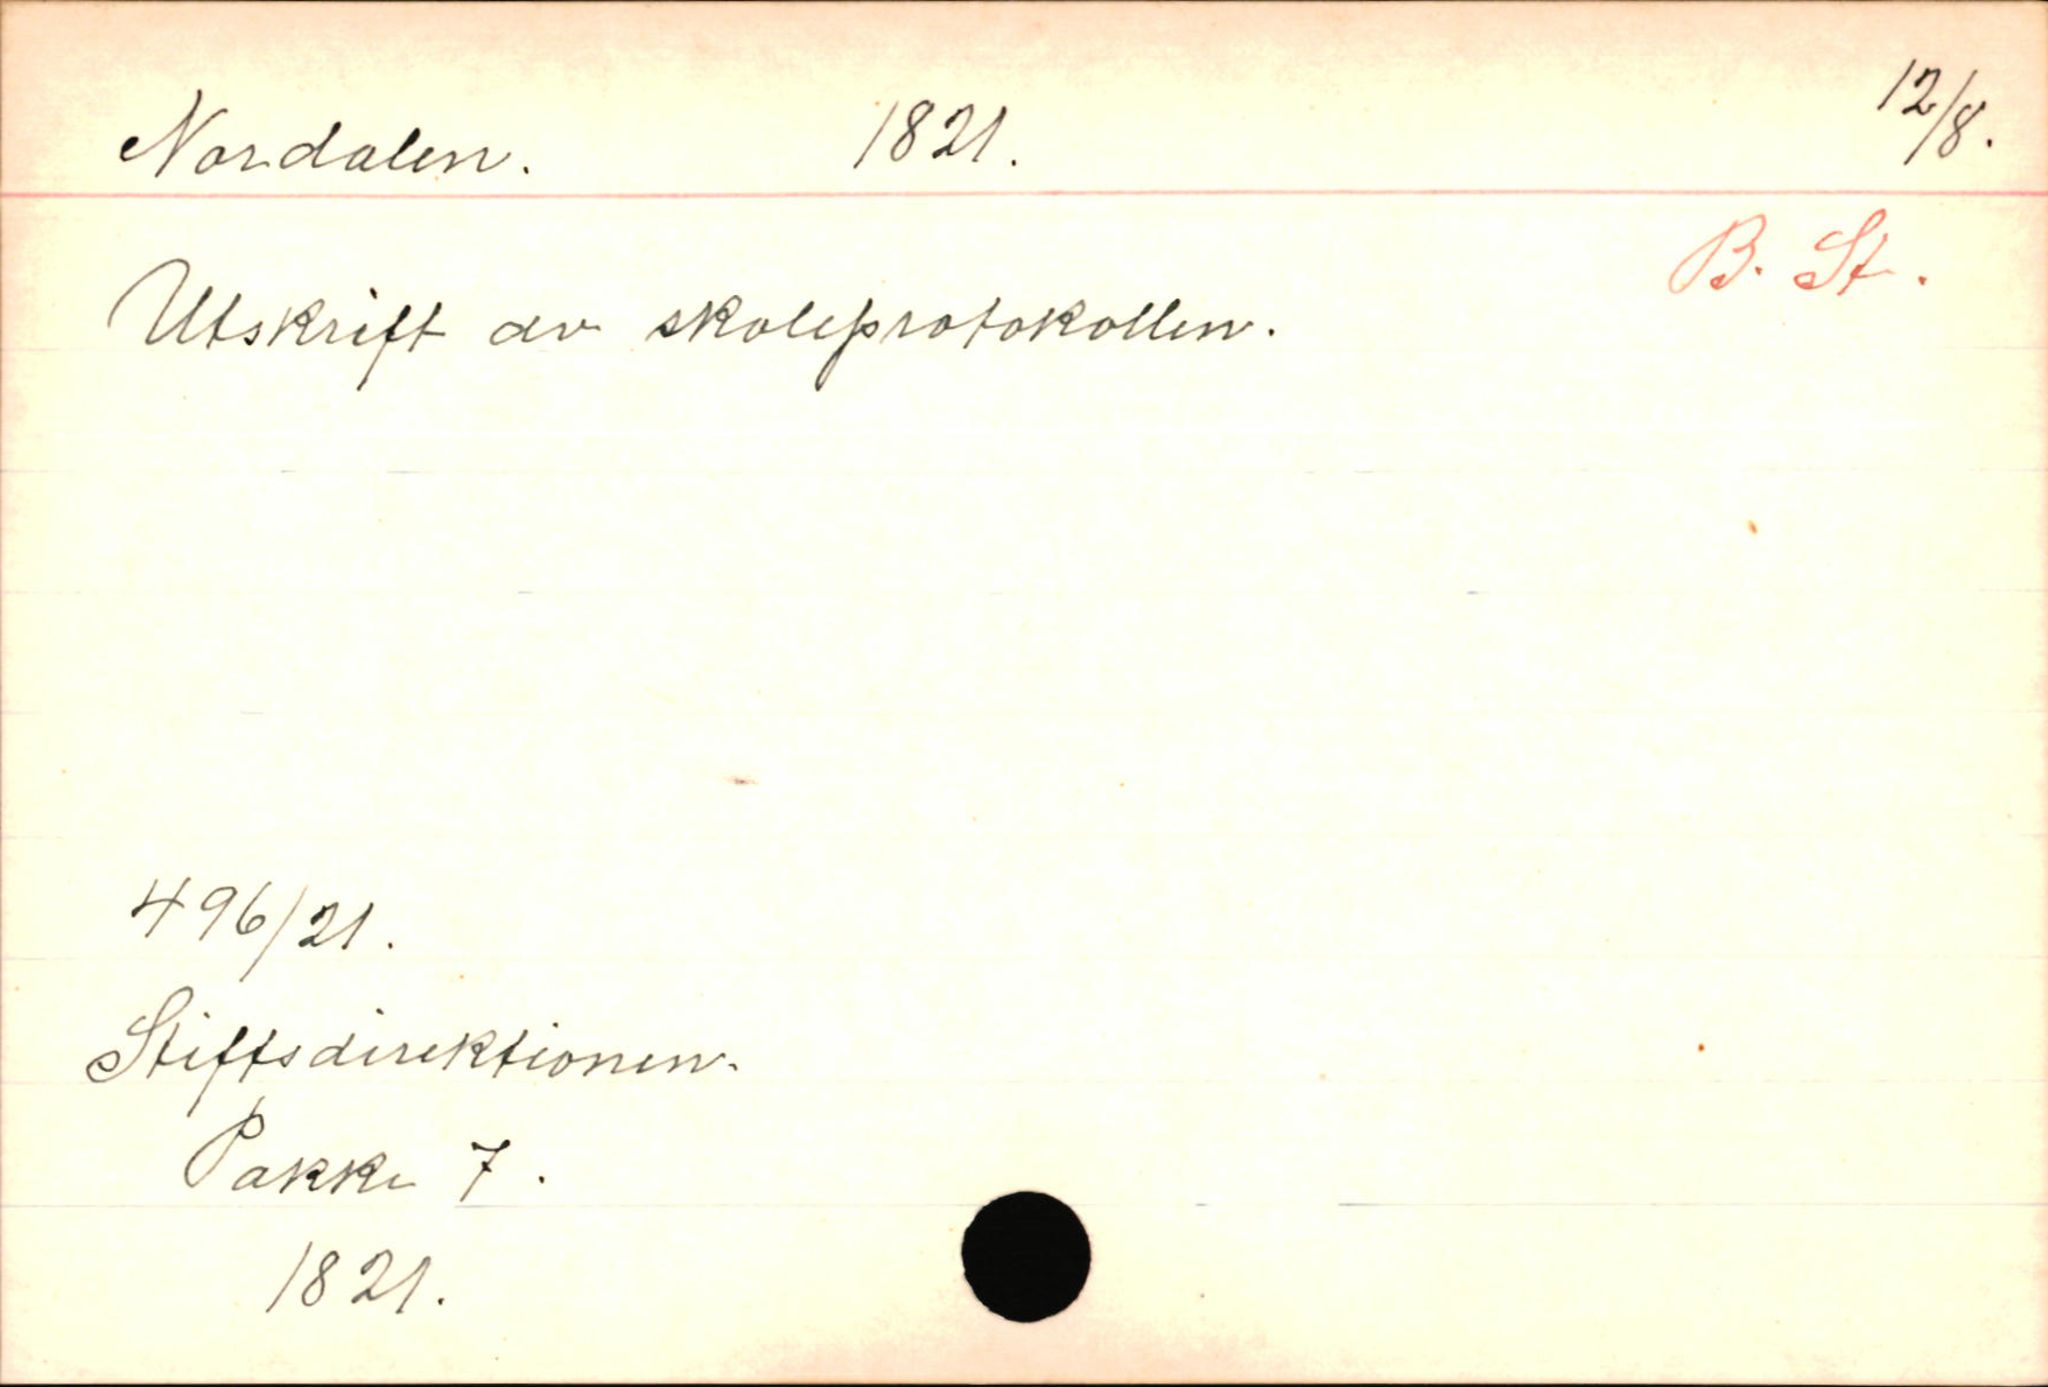 Nordalen. 1821. 12/8.
B. St.
Utskrift av skoleprotokollen.
496/21.
Stiftsdirektionen.
Pakke 7.
1821.